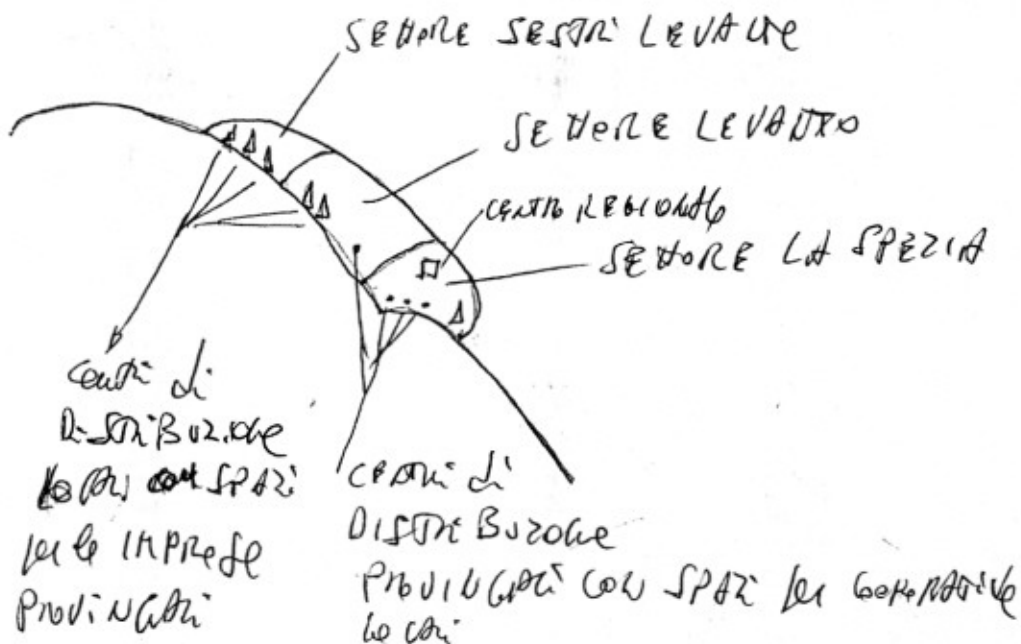 SETTORE SESTRI LEVANTE
SETTORE LEVANTO
CENTRO REGIONALE
SETTORE LA SPEZIA
CENTRI di
DISTRIBUZIONE
LOCALI CON SPAZI
per le IMPRESE
PROVINCIALI
CENTRI di
DISTRIBUZIONE
PROVINCIALI CON SPAZI per COOPERATIVE
locali